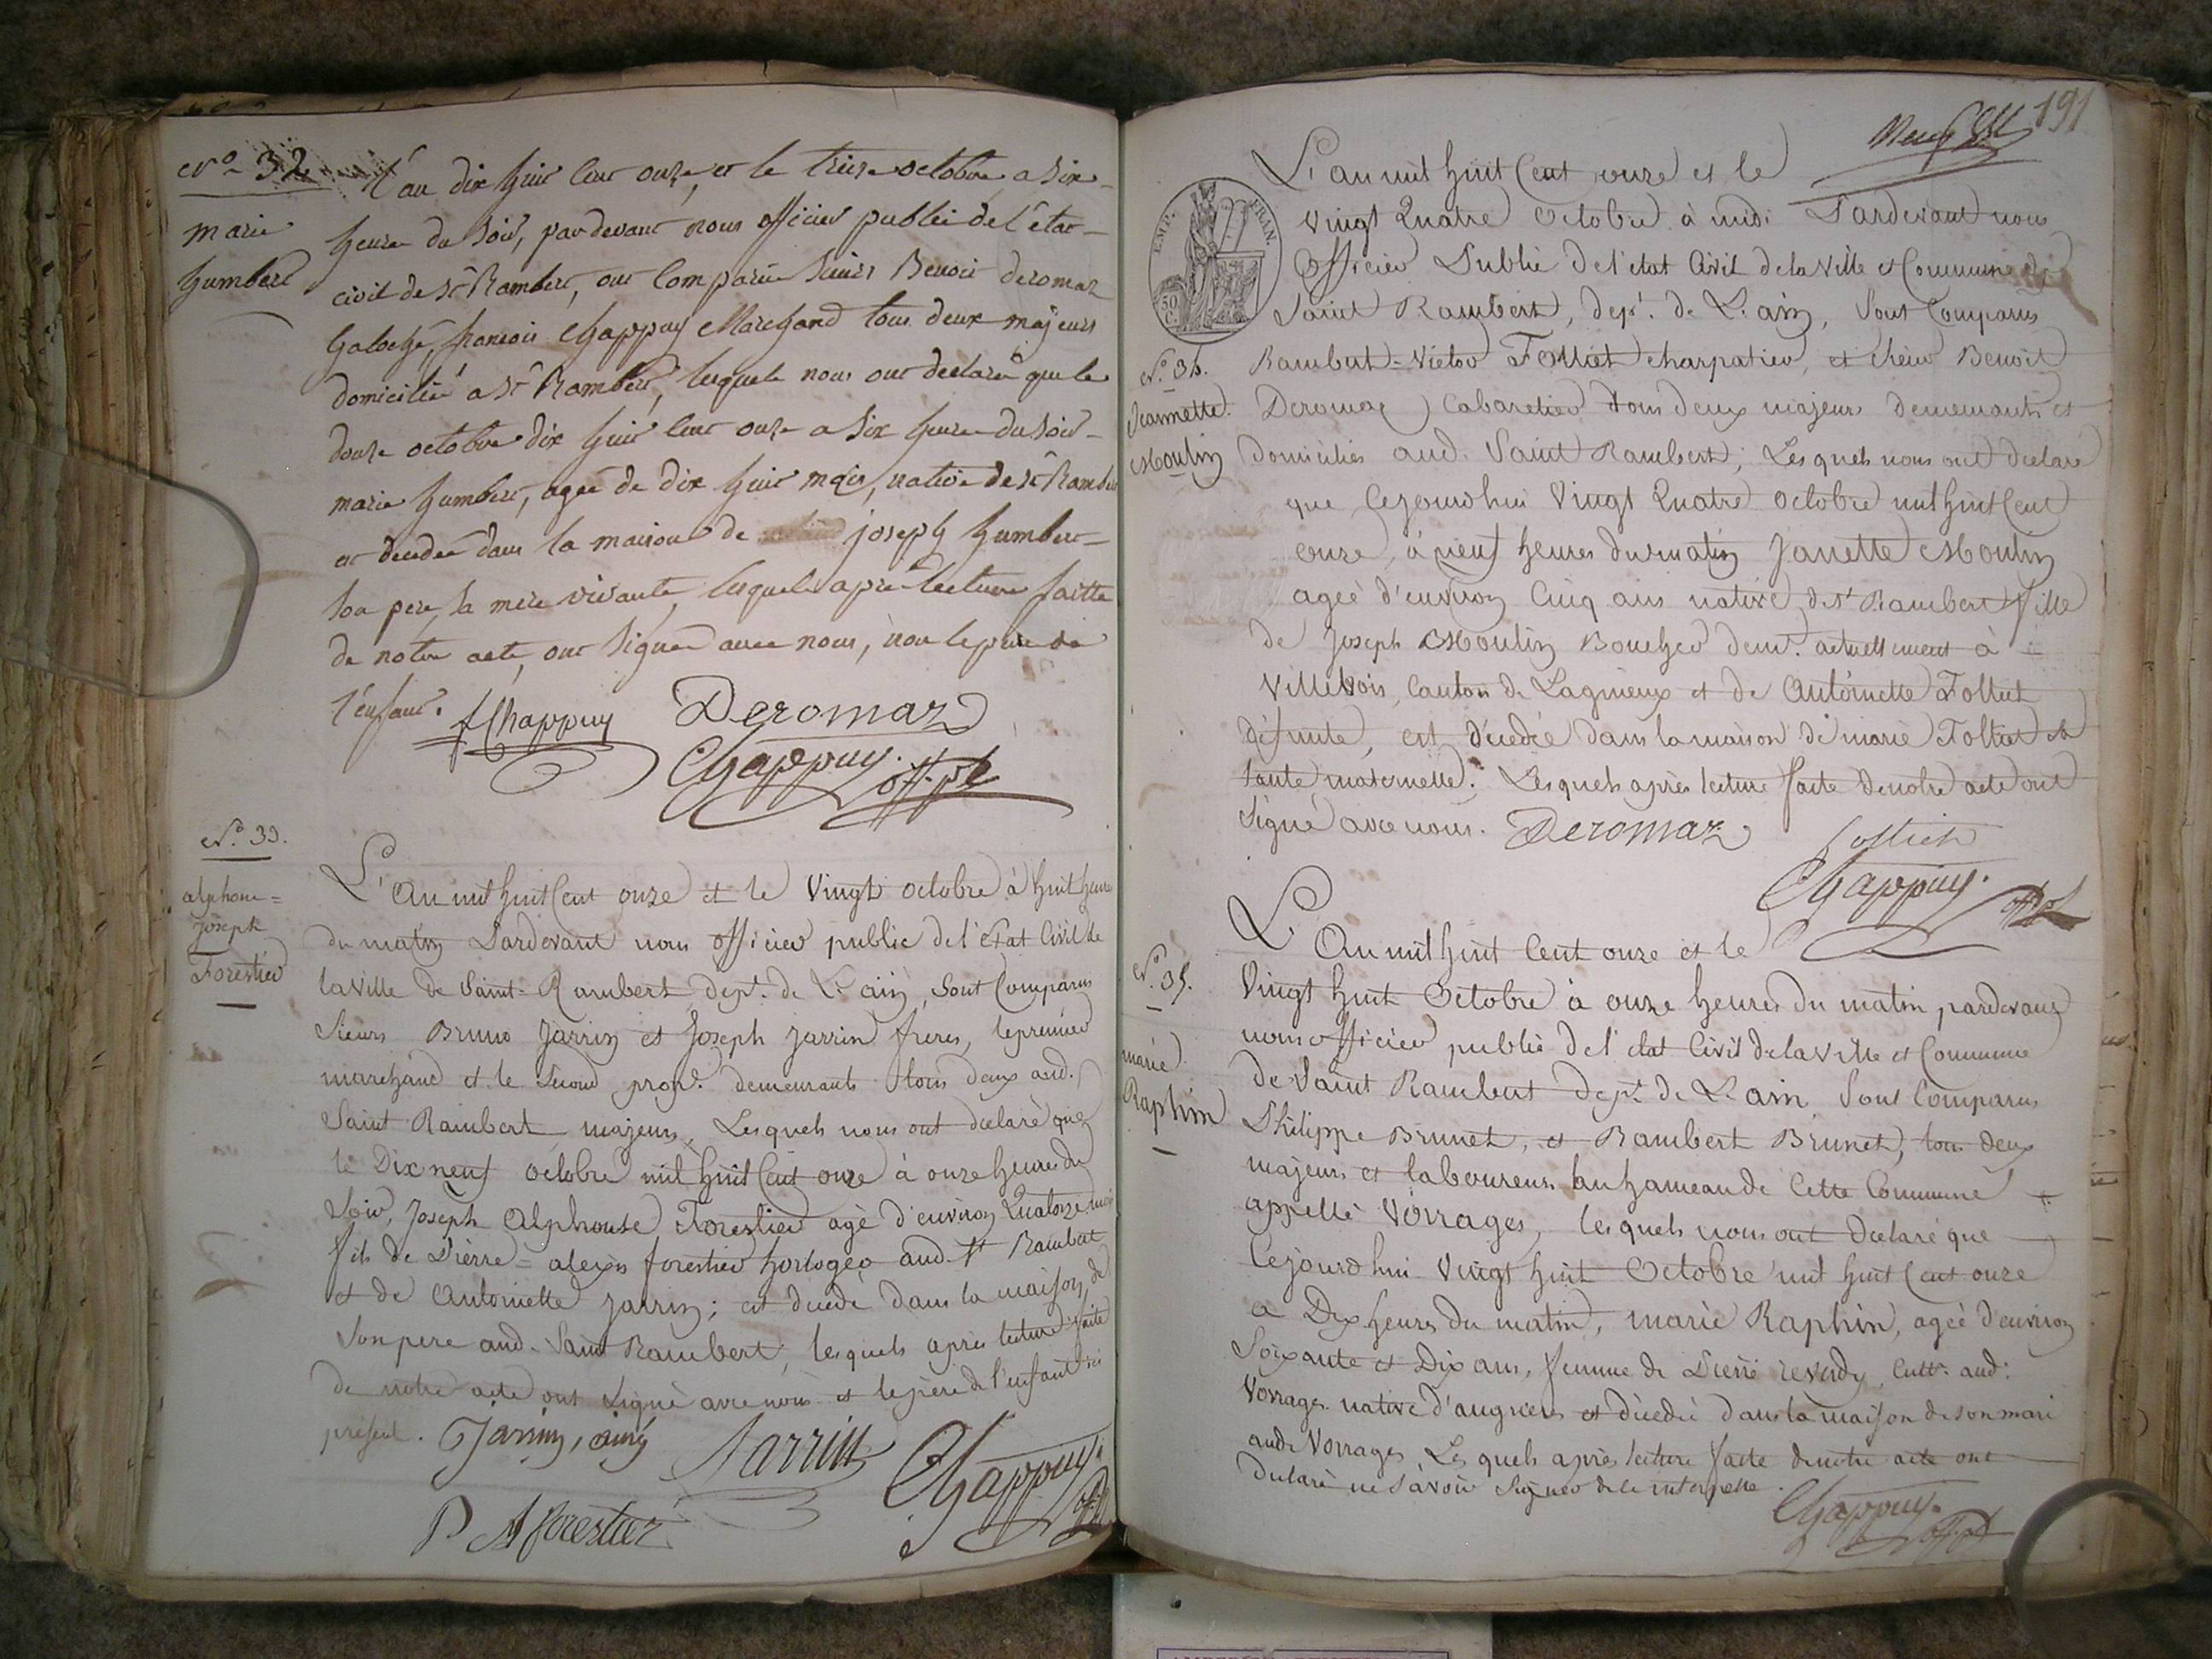 N.o 32
marie
humbert
L'an dix huit cent onze, et le treize octobre a six
heures du soir, par devant nous officier public de l'état
civil de St Rambert, ont comparu sieurs Benoit deromaz
françois Chappuy Marchand tous deux majeurs
domiciliés a St Rambert, lesquels nous ont déclaré que le
douze octobre dix huit cent onze a six heures du soir
marie humbert, agée de dix huit mois, native de St Rambert
est decedée dans la maison de joseph humbert
son pere, la mere vivante, lesquels après lecture faitte
de notre acte, ont signé avec nous, non le pere de
l'enfant.
fChappuy Deromaz
Chappuy. off. pb
N.o 33.
alphonse=
Joseph
Forestier
L'An mil huit Cent onze et le Vingt octobre à huit heures
du matin Pardevant nous officier public de l'Etat Civil de
la Ville de Saint-Rambert, dept. de L'ain, Sont Comparus
Sieurs Bruno Jarrin et Joseph Jarrin freres, le premier
marchand et le second propre. demeurants tous deux aud.
Saint Rambert majeurs, Lesquels nous ont declaré que
le Dix neuf octobre mil huit Cent onze à onze heures du
Soir, Joseph Alphonse Forestier agé d'environ Quatorze mois
fils de Pierre=alexis forestier horloger aud. St Rambert
et de Antoinette Jarrin; est decedé dans la maison de
Son pere aud. Saint Rambert, lesquels après lecture faite
de notre acte ont signé avec nous et le père de l'enfant ici
présent. Jarrin, ainé Jarrin Chappuy. off. pb
P A forestier
191
Neuf
EMP. FRAN.
50 C.
L'an mil huit Cent onze et le
Vingt Quatre Octobre à midi Pardevant nous
Officier Public de l'etat Civil de la Ville et Commune de
Saint Rambert, dept. de L'ain, Sont Comparus
N.o 34.
Jeannette
Moulin
Rambert-Victor Folliet charpatier, et Sieur Benoit
Deromaz Cabaretier tous deux majeurs demeurants et
domiciliés aud. Saint Rambert; Lesquels nous ont declaré
que Cejourd'hui Vingt Quatre octobre mil huit Cent
onze, à neuf heures du matin Janette Moulin
agée d'environ Cinq ans native de St Rambert fille
de Joseph Moulin Boucher demt. actuellement à
Villebois, Canton de Lagnieux et de Antoinette Folliet
défunte, est décedée dans la maison de marie Folliet sa
tante maternelle; Lesquels après lecture faite de notre acte ont
Signé avec nous. Deromaz folliet
Chappuy. off. pb
N.o 35.
marie
Raphin
L'An mil huit Cent onze et le
Vingt huit Octobre à onze heures du matin pardevant
nous officier public de l'etat Civil de la Ville et Commune
de Saint Rambert dept. de L'ain, Sont Comparus
Philippe Brunet, et Rambert Brunet, tous deux
majeurs et laboureurs au hameau de Cette Commune
appellé Vorrages, lesquels nous ont declaré que
Cejourd'hui Vingt huit Octobre mil huit Cent onze
a Dix heures du matin, marie Raphin, agée d'environ
Soixante et Dix ans, femme de Pierre reverdy, Cultr. aud.
Vorrages native d'angrieres est décedée dans la maison de son mari
aud. Vorrages, Lesquels après lecture faite de notre acte ont
declaré ne savoir signer de ce interpellé.
Chappuy. off. pb